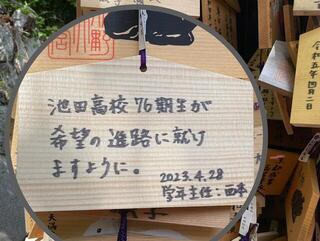 池田高校76期生が
希望の進路に就け
ますように。
2023.4.28
学年主任：西本
令和五年四月二日
天満